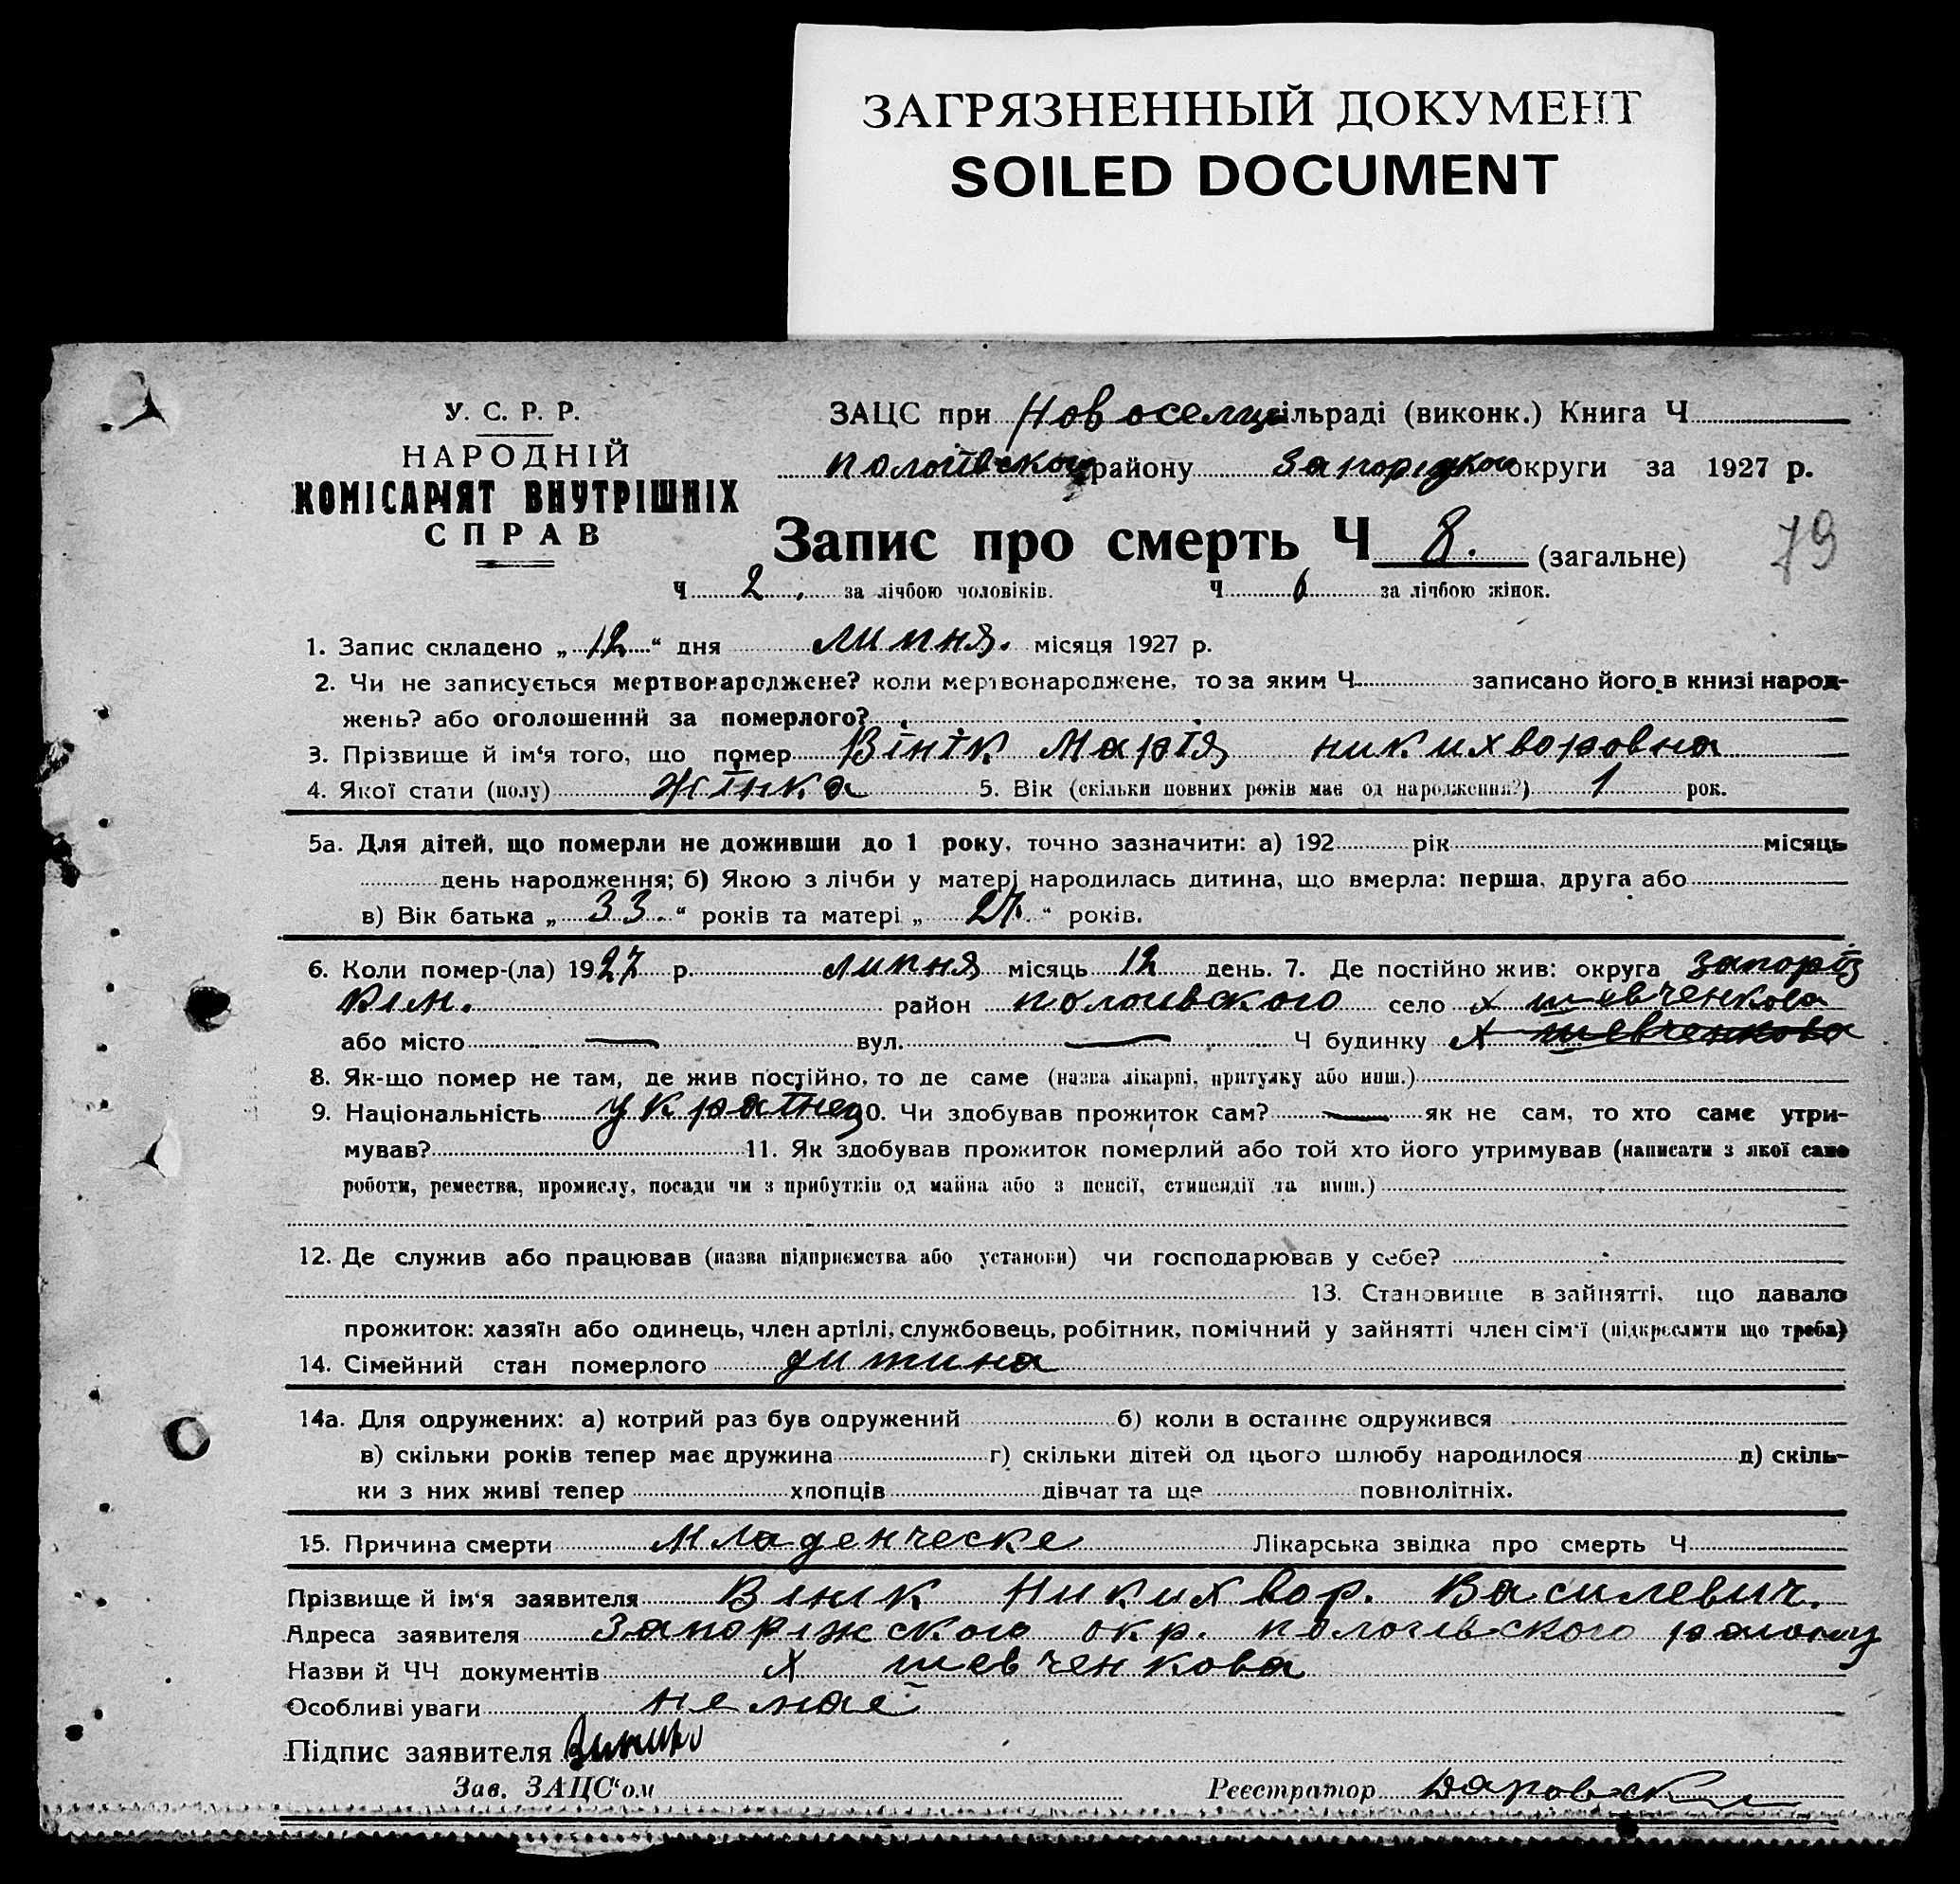 ЗАГРЯЗНЕННЫЙ ДОКУМЕНТ
SOILED DOCUMENT
У. С. Р. Р.
НАРОДНІЙ
КОМІСАРІЯТ ВНУТРІШНІХ
СПРАВ
ЗАЦС при Новоселиц сільраді (виконк.) Книга Ч
пологівского району Запорізкои округи за 1927 р.
Запис про смерть Ч 8. (загальне)
79
Ч 2. за лічбою чоловіків. Ч 6 за лічбою жінок.
1. Запис складено „12“ дня липня. місяця 1927 р.
2. Чи не записується мертвонароджене? коли мертвонароджене, то за яким Ч записано його в книзі народ-
жень? або оголошений за померлого?
3. Прізвище й ім‘я того, що помер Вінік Марія никихворовна
4. Якої стати (полу) жінка 5. Вік (скільки повних років має од народження?) 1 рок.
5а. Для дітей, що померли не доживши до 1 року, точно зазначити: а) 192 рік місяць
день народження; б) Якою з лічби у матері народилась дитина, що вмерла: перша, друга або
в) Вік батька „33.“ років та матері „27.“ років.
6. Коли помер-(ла) 1927 р. липня місяць 12 день. 7. Де постійно жив: округа запоріз
кім. район пологівского село х шевченкова
або місто — вул. — Ч будинку х шевченкова
8. Як-що помер не там, де жив постійно, то де саме (назва лікарні, притулку або инш.)
9. Національність україне 10. Чи здобував прожиток сам? — як не сам, то хто саме утри-
мував? 11. Як здобував прожиток померлий або той хто його утримував (написати з якої саме
роботи, ремества, промислу, посади чи з прибутків од майна або з пенсії, стипендії та инш.)
12. Де служив або працював (назва підприємства або установи) чи господарював у себе?
13. Становище в зайнятті, що давало
прожиток: хазяїн або одинець, член артілі, службовець, робітник, помічний у зайнятті член сім‘ї (підкреслити що треба)
14. Сімейний стан померлого дитина
14а. Для одружених: а) котрий раз був одружений б) коли в останнє одружився
в) скільки років тепер має дружина г) скільки дітей од цього шлюбу народилося д) скіль-
ки з них живі тепер хлопців дівчат та ще повнолітніх.
15. Причина смерти Младенческе Лікарська звідка про смерть Ч
Прізвище й ім‘я заявителя Вінік Никихвор. Василевич.
Адреса заявителя Запоріжского окр. пологівского району
Назви й ЧЧ документів х шевченкова
Особливі уваги немає
Підпис заявителя
Зав. ЗАЦС‘ом Реєстратор